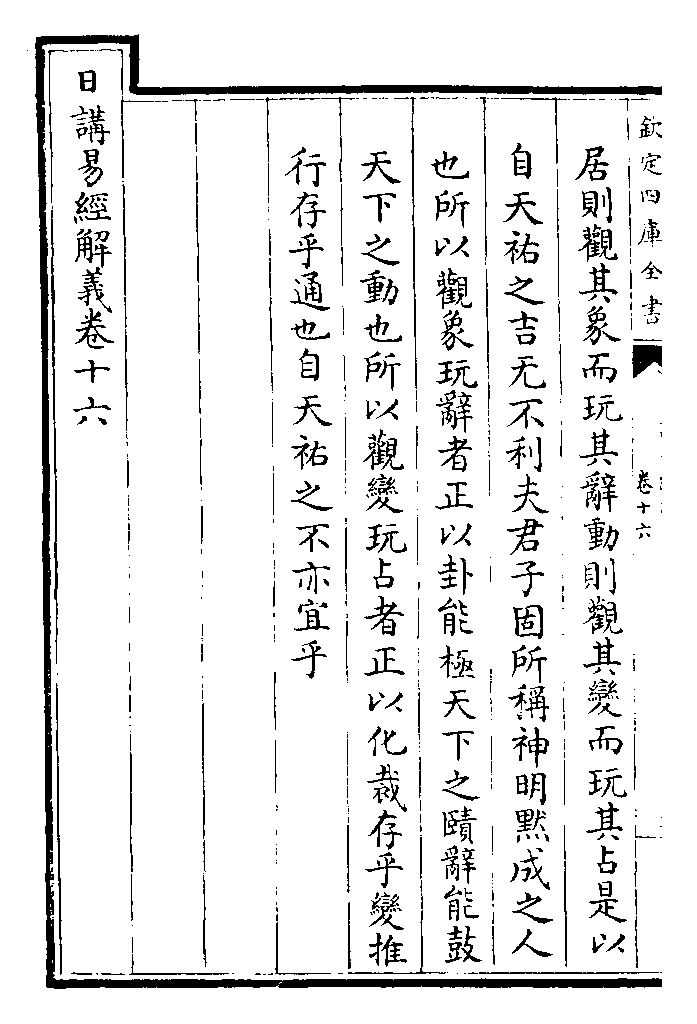 欽定四庫全書
卷十六
居則觀其象而玩其辭動則觀其變而玩其占是以
自天祐之吉无不利夫君子固所稱神明默成之人
也所以觀象玩辭者正以卦能極天下之賾辭能鼓
天下之動也所以觀變玩占者正以化裁存乎變推
行存乎通也自天祐之不亦宜乎
日講易經解義卷十六